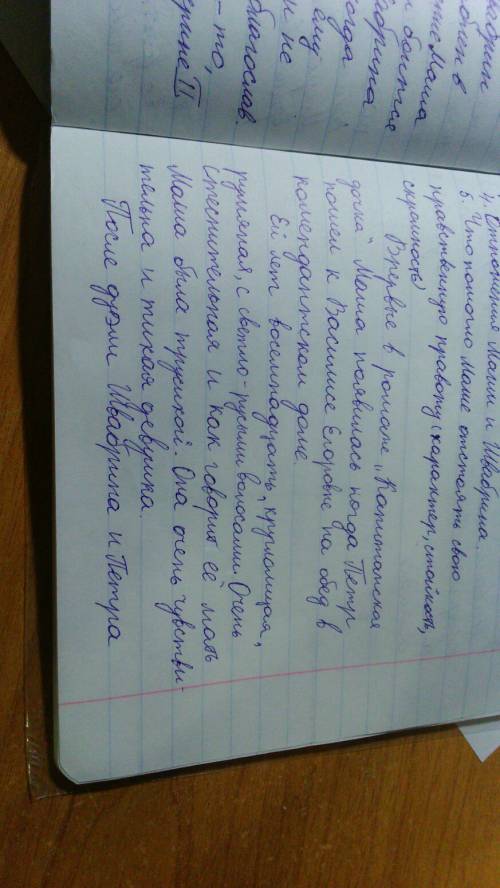 4. Отношения Маши и Швабрина.
5. Что помогло Маше отстоять свою
нравственную правоту (характер, стойкость,
скромность)
Впервые в романе „Капитанская
дочка" Маша появилась когда Петр
пошел к Василисе Егоровне на обед в
комендантском доме.
Ей лет восемнадцать, круглолицая,
румяная, с светло-русыми волосами. Очень
стеснительная и как говорит её мать
Маша была трусихой. Она очень чувстви-
тельна и тихая девушка.
После дуэли Швабрина и Петра
Маша
боится
когда
ему
и не
благослов
- то,
II